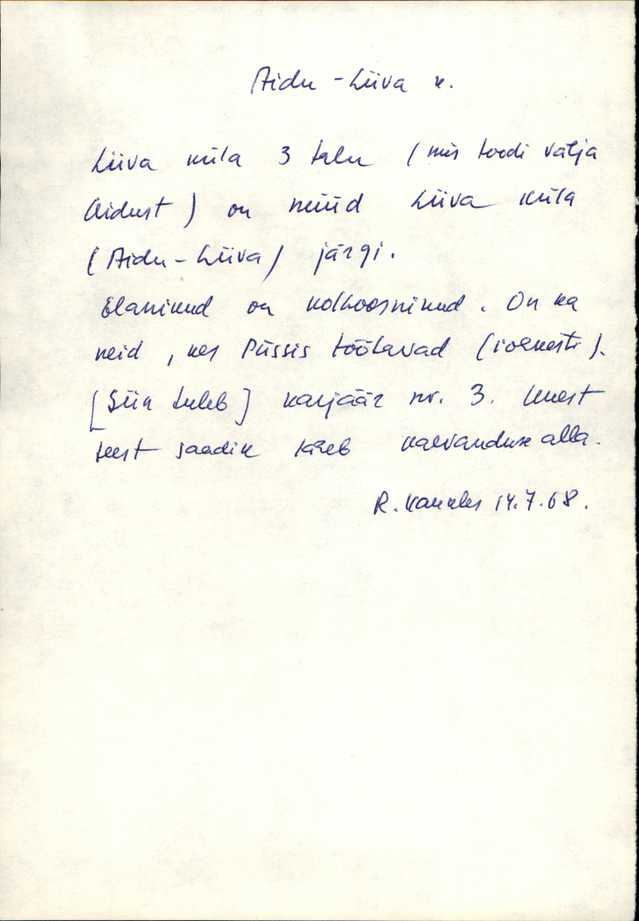 Aidu-Liiva k.
Liiva küla 3 talu (mis toodi välja
Aidust) on nüüd Liiva küla
(Aidu-Liiva) järgi.
Elanikud on kolhoosnikud. On ka
neid, kes Püssis töötavad
[Siia tuleb] karjäär nr. 3. Umest
teest saadik läheb kaevanduse alla.
R. 14.7.68.